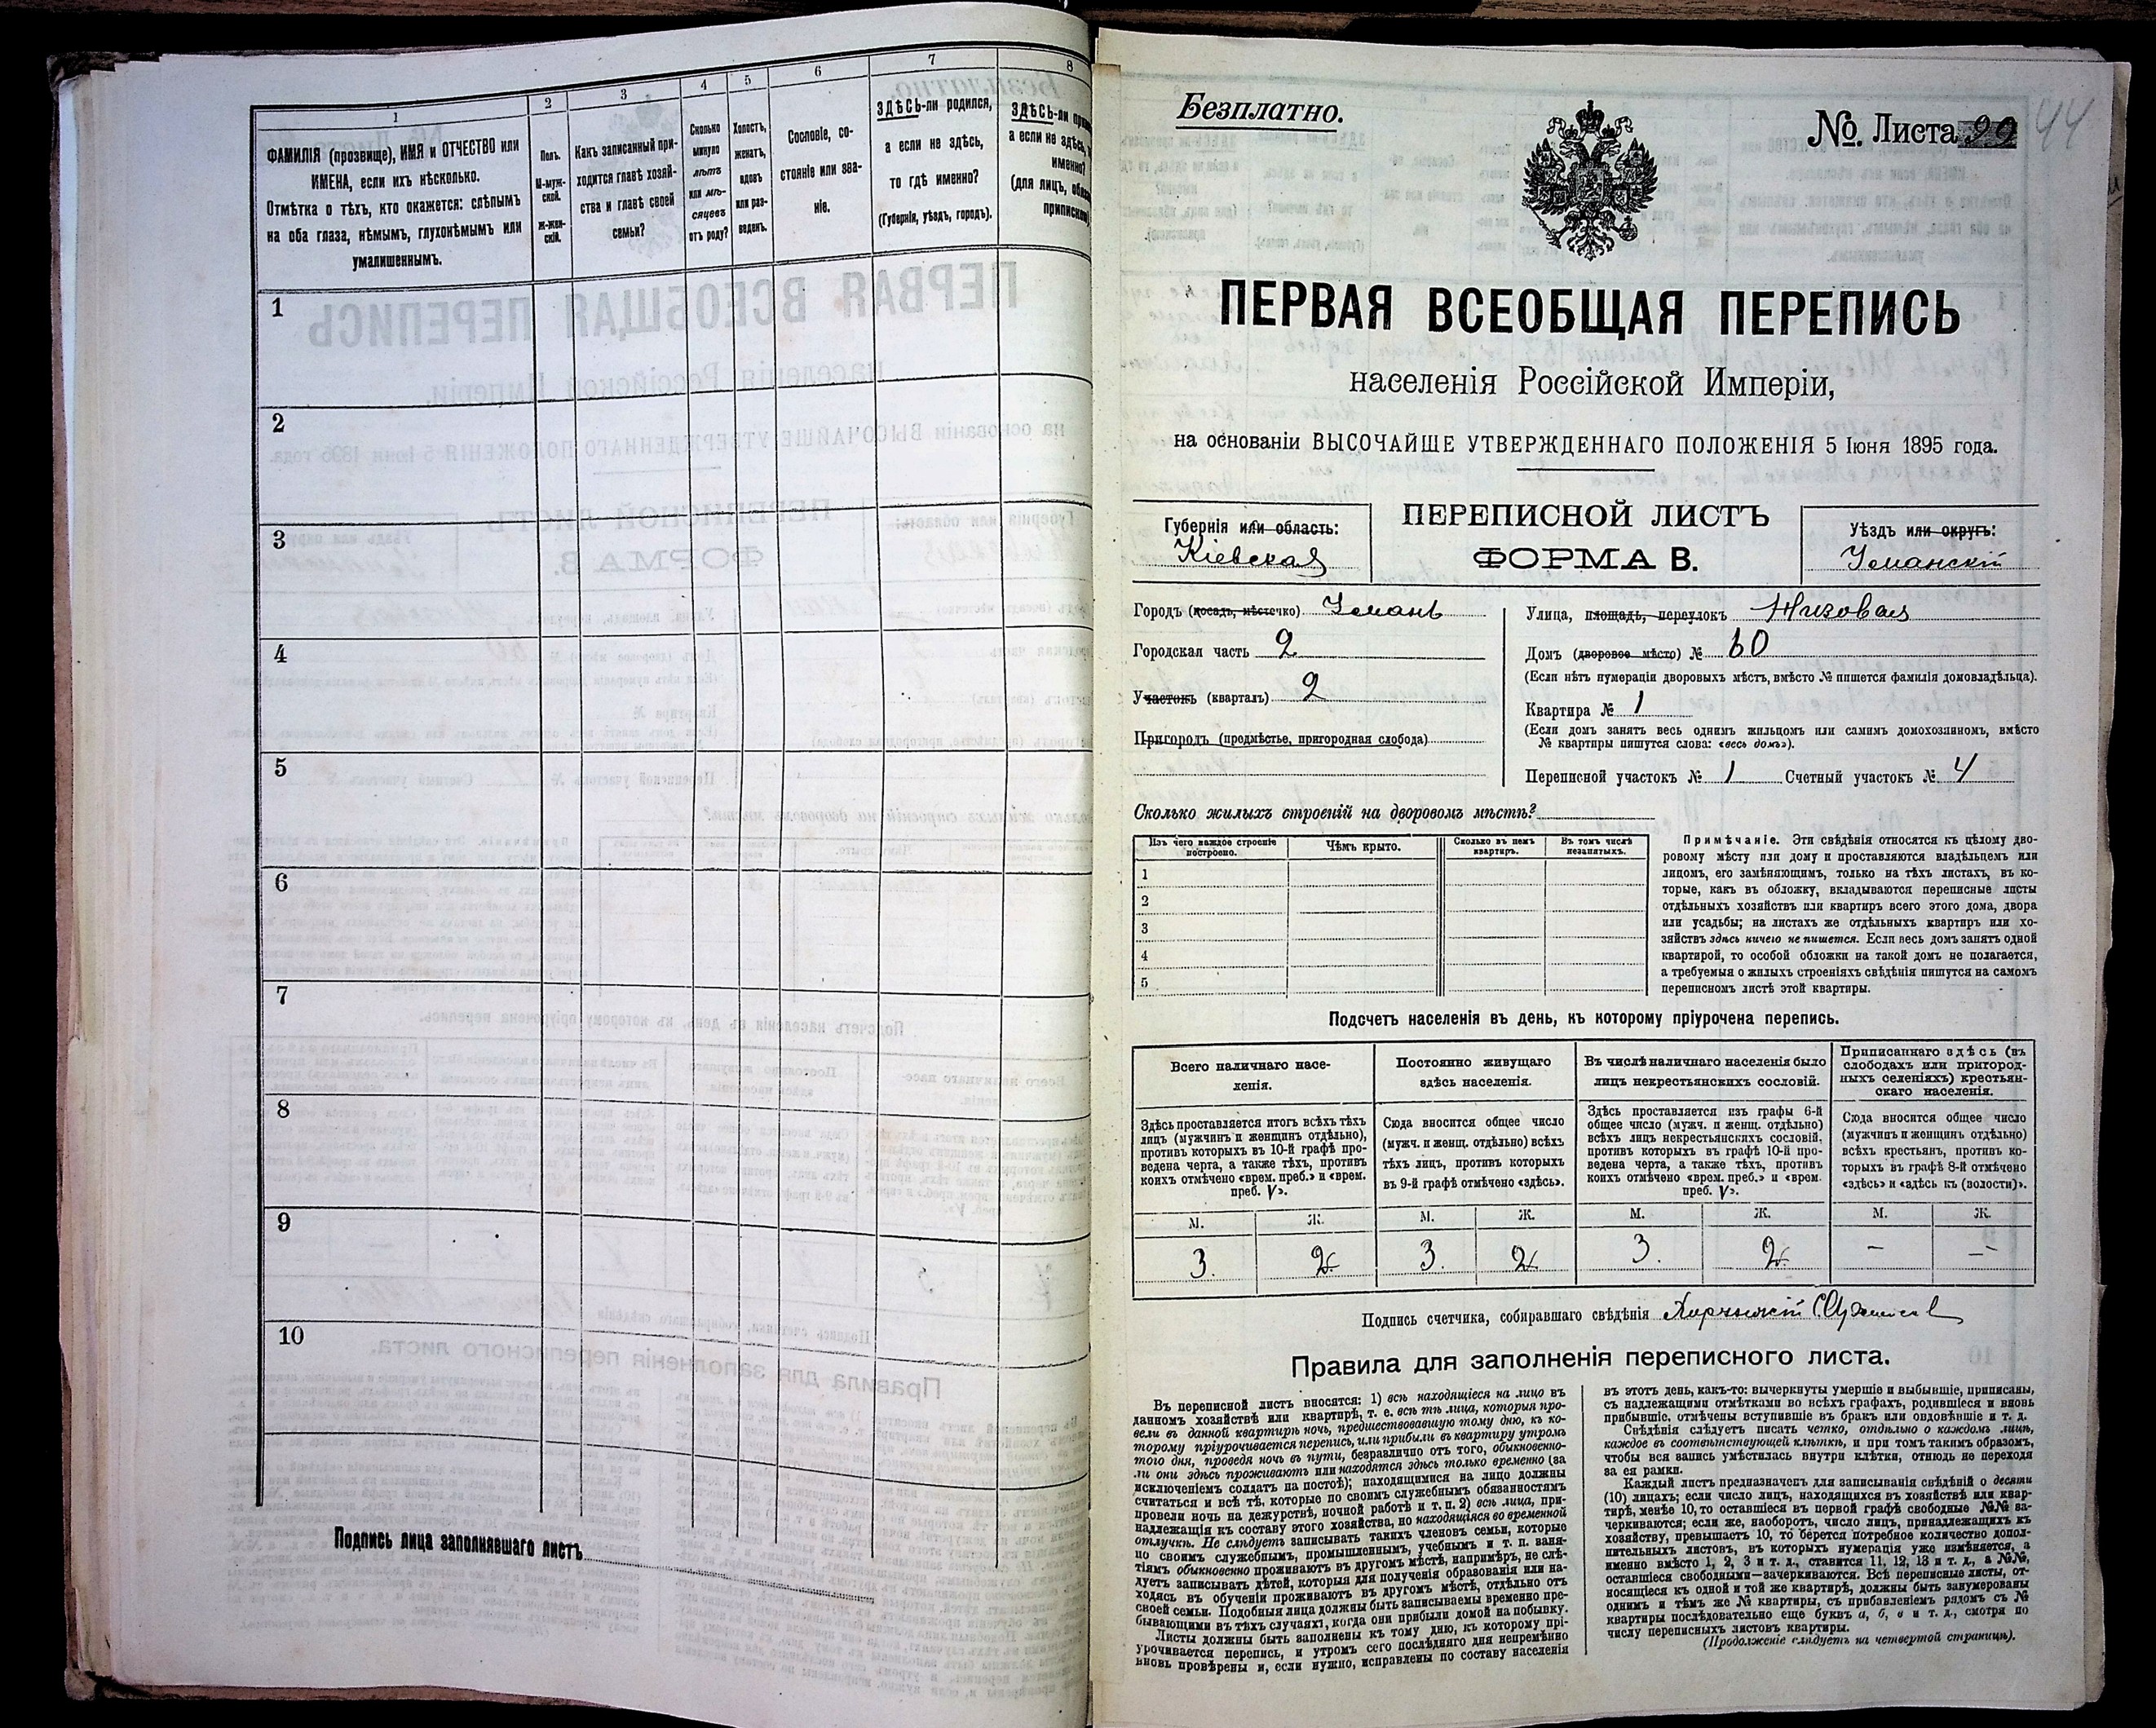 1
ФАМИЛІЯ (прозвище), ИМЯ и ОТЧЕСТВО или
ИМЕНА, если ихъ нѣсколько.
Отмѣтка о тѣхъ, кто окажется: слѣпымъ
на оба глаза, нѣмымъ, глухонѣмымъ или
умалишеннымъ.
2
Полъ.
М-муж-
ской.
Ж-жен-
скій.
3
Какъ записанный при-
ходится главѣ хозяй-
ства и главѣ своей
семьи?
4
Сколько
минуло
лѣтъ
или мѣ-
сяцевъ
отъ роду?
5
Холостъ,
женатъ,
вдовъ
или раз-
веденъ.
6
Сословіе, со-
стояніе или зва-
ніе.
7
ЗДѢСЬ-ли родился,
а если не здѣсь,
то гдѣ именно?
(Губернія, уѣздъ, городъ).
8
ЗДѢСЬ-ли
а если не здѣсь,
именно?
(для лицъ,
1
2
3
4
5
6
7
8
9
10
Подпись лица заполнявшаго листъ
Безплатно.
№ Листа 44
ПЕРВАЯ ВСЕОБЩАЯ ПЕРЕПИСЬ
населенія Россійской Имперіи,
на основаніи ВЫСОЧАЙШЕ УТВЕРЖДЕННАГО ПОЛОЖЕНІЯ 5 Іюня 1895 года.
Губернія или область:
Кіевская
ПЕРЕПИСНОЙ ЛИСТЪ
ФОРМА В.
Уѣздъ или округъ:
Уманскій
Городъ (посадъ, мѣстечко) Умань
Городская часть 2
Участокъ (кварталъ) 2
Пригородъ (предмѣстье, пригородная слобода)
Улица, площадь, переулокъ Низовая
Домъ (дворовое мѣсто) № 60
(Если нѣтъ нумераціи дворовыхъ мѣстъ, вмѣсто № пишется фамилія домовладѣльца).
Квартира № 1
(Если домъ занятъ весь однимъ жильцомъ или самимъ домохозяиномъ, вмѣсто
№ квартиры пишутся слова: «весь домъ»).
Переписной участокъ № 1 Счетный участокъ № 4
Сколько жилыхъ строеній на дворовомъ мѣстѣ?
Изъ чего каждое строеніе
построено.
Чѣмъ крыто.
Сколько въ немъ
квартиръ.
Въ томъ числѣ
незанятыхъ.
1
2
3
4
5
Примѣчаніе. Эти свѣдѣнія относятся къ цѣлому дво-
ровому мѣсту или дому и проставляются владѣльцемъ или
лицомъ, его замѣняющимъ, только на тѣхъ листахъ, въ ко-
торые, какъ въ обложку, вкладываются переписные листы
отдѣльныхъ хозяйствъ или квартиръ всего этого дома, двора
или усадьбы; на листахъ же отдѣльныхъ квартиръ или хо-
зяйствъ здѣсь ничего не пишется. Если весь домъ занятъ одной
квартирой, то особой обложки на такой домъ не полагается,
а требуемыя о жилыхъ строеніяхъ свѣдѣнія пишутся на самомъ
переписномъ листѣ этой квартиры.
Подсчетъ населенія въ день, къ которому пріурочена перепись.
Всего наличнаго насе-
ленія.
Постоянно живущаго
здѣсь населенія.
Въ числѣ наличнаго населенія было
лицъ некрестьянскихъ сословій.
Приписаннаго здѣсь (въ
слободахъ или пригород-
ныхъ селеніяхъ) крестьян-
скаго населенія.
Здѣсь проставляется итогъ всѣхъ тѣхъ
лицъ (мужчинъ и женщинъ отдѣльно),
противъ которыхъ въ 10-й графѣ про-
ведена черта, а также тѣхъ, противъ
коихъ отмѣчено «врем. преб.» и «врем.
преб. V».
Сюда вносится общее число
(мужч. и женщ. отдѣльно) всѣхъ
тѣхъ лицъ, противъ которыхъ
въ 9-й графѣ отмѣчено «здѣсь».
Здѣсь проставляется изъ графы 6-й
общее число (мужч. и женщ. отдѣльно)
всѣхъ лицъ некрестьянскихъ сословій,
противъ которыхъ въ графѣ 10-й про-
ведена черта, а также тѣхъ, противъ
коихъ отмѣчено «врем. преб.» и «врем.
преб. V».
Сюда вносится общее число
(мужчинъ и женщинъ отдѣльно)
всѣхъ крестьянъ, противъ ко-
торыхъ въ графѣ 8-й отмѣчено
«здѣсь» и «здѣсь къ (волости)».
М. Ж. М. Ж. М. Ж. М. Ж.
3. 2 3. 2 3. 2 — —
Подпись счетчика, собиравшаго свѣдѣнія
Правила для заполненія переписного листа.
Въ переписной листъ вносятся: 1) всѣ находящіеся на лицо въ
данномъ хозяйствѣ или квартирѣ, т. е. всѣ тѣ лица, которыя про-
вели въ данной квартирѣ ночь, предшествовавшую тому дню, къ ко-
торому пріурочивается перепись, или прибыли въ квартиру утромъ
того дня, проведя ночь въ пути, безразлично отъ того, обыкновенно-
ли они здѣсь проживаютъ или находятся здѣсь только временно (за
исключеніемъ солдатъ на постоѣ); находящимися на лицо должны
считаться и всѣ тѣ, которые по своимъ служебнымъ обязанностямъ
провели ночь на дежурствѣ, ночной работѣ и т. п. 2) всѣ лица, при-
надлежащія къ составу этого хозяйства, но находящіяся во временной
отлучкѣ. Не слѣдуетъ записывать такихъ членовъ семьи, которые
по своимъ служебнымъ, промышленнымъ, учебнымъ и т. п. заня-
тіямъ обыкновенно проживаютъ въ другомъ мѣстѣ, напримѣръ, не слѣ-
дуетъ записывать дѣтей, которыя для полученія образованія или на-
ходясь въ обученіи проживаютъ въ другомъ мѣстѣ, отдѣльно отъ
своей семьи. Подобныя лица должны быть записываемы временно пре-
бывающими въ тѣхъ случаяхъ, когда они прибыли домой на побывку.
Листы должны быть заполнены къ тому дню, къ которому прі-
урочивается перепись, и утромъ сего послѣдняго дня непремѣнно
вновь провѣрены и, если нужно, исправлены по составу населенія
въ этотъ день, какъ-то: вычеркнуты умершіе и выбывшіе, приписаны,
съ надлежащими отмѣтками во всѣхъ графахъ, родившіеся и вновь
прибывшіе, отмѣчены вступившіе въ бракъ или овдовѣвшіе и т. д.
Свѣдѣнія слѣдуетъ писать четко, отдѣльно о каждомъ лицѣ,
каждое въ соотвѣтствующей клѣткѣ, и при томъ такимъ образомъ,
чтобы вся запись умѣстилась внутри клѣтки, отнюдь не переходя
за ея рамки.
Каждый листъ предназначенъ для записыванія свѣдѣній о десяти
(10) лицахъ; если число лицъ, находящихся въ хозяйствѣ или квар-
тирѣ, менѣе 10, то оставшіеся въ первой графѣ свободные №№ за-
черкиваются; если же, наоборотъ, число лицъ, принадлежащихъ къ
хозяйству, превышаетъ 10, то берется потребное количество допол-
нительныхъ листовъ, въ которыхъ нумерація уже измѣняется, а
именно вмѣсто 1, 2, 3 и т. д., ставится 11, 12, 13 и т. д., а №№,
оставшіеся свободными—зачеркиваются. Всѣ переписные листы, от-
носящіеся къ одной и той же квартирѣ, должны быть занумерованы
однимъ и тѣмъ же № квартиры, съ прибавленіемъ рядомъ съ №
квартиры послѣдовательно еще буквъ а, б, в и т. д., смотря по
числу переписныхъ листовъ квартиры.
(Продолженіе слѣдуетъ на четвертой страницѣ).